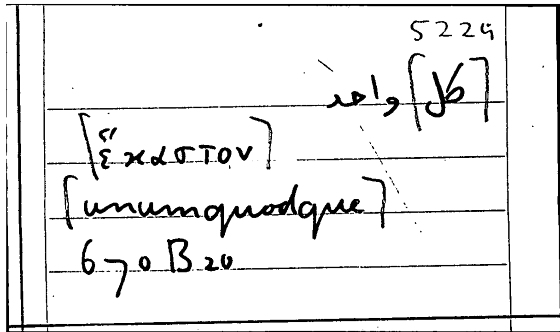 5224
[كل] واحد
[ἕκαστον]
[unumquodque]
670 B 20